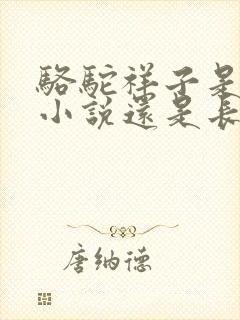 駱駝祥子是
小說還是長
唐納德